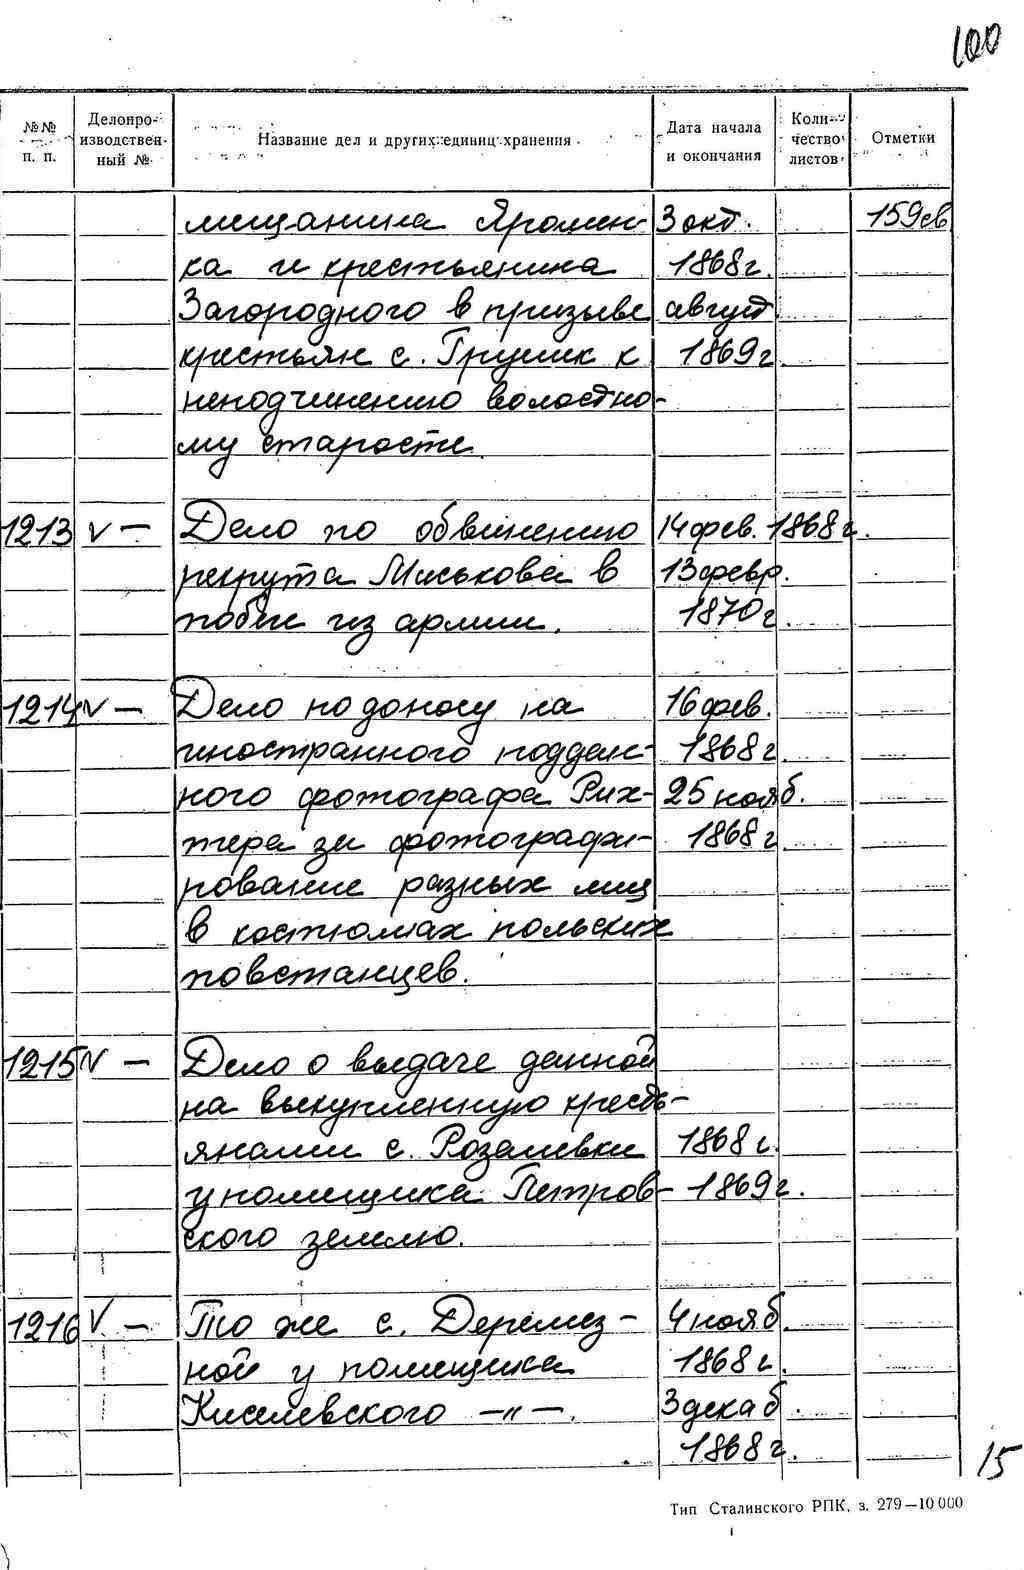 100
№№ п. п. Делопро- изводствен- ный № Название дел и других единиц хранения Дата начала и окончания Коли- чество листов Отметки
мещанина Яромен- 3 окт. 159ев
ка и крестьянина 1868 г.
Загородного в призыве август
крестьян с. Грушек к 1869 г.
неподчинению волостно-
му старосте.
1213 v — Дело по обвинению 14 фев. 1868 г.
рекрута Миськова в 13 февр.
побеге из армии. 1870 г.
1214 v — Дело по доносу на 16 фев.
иностранного поддан- 1868 г.
ного фотографа Рих- 25 нояб.
тера за фотографи- 1868 г.
рование разных лиц
в костюмах польских
повстанцев.
1215 v — Дело о выдаче данной
на выкупленную кресть-
янами с. Розалиевки 1868 г.
у помещика Петров- 1869 г.
ского землю.
1216 v — То же с. Деремез- 4 нояб.
ной у помещика 1868 г.
Киселевского —"—. 3 декаб.
1868 г.
15
Тип Сталинского РПК, з. 279—10 000